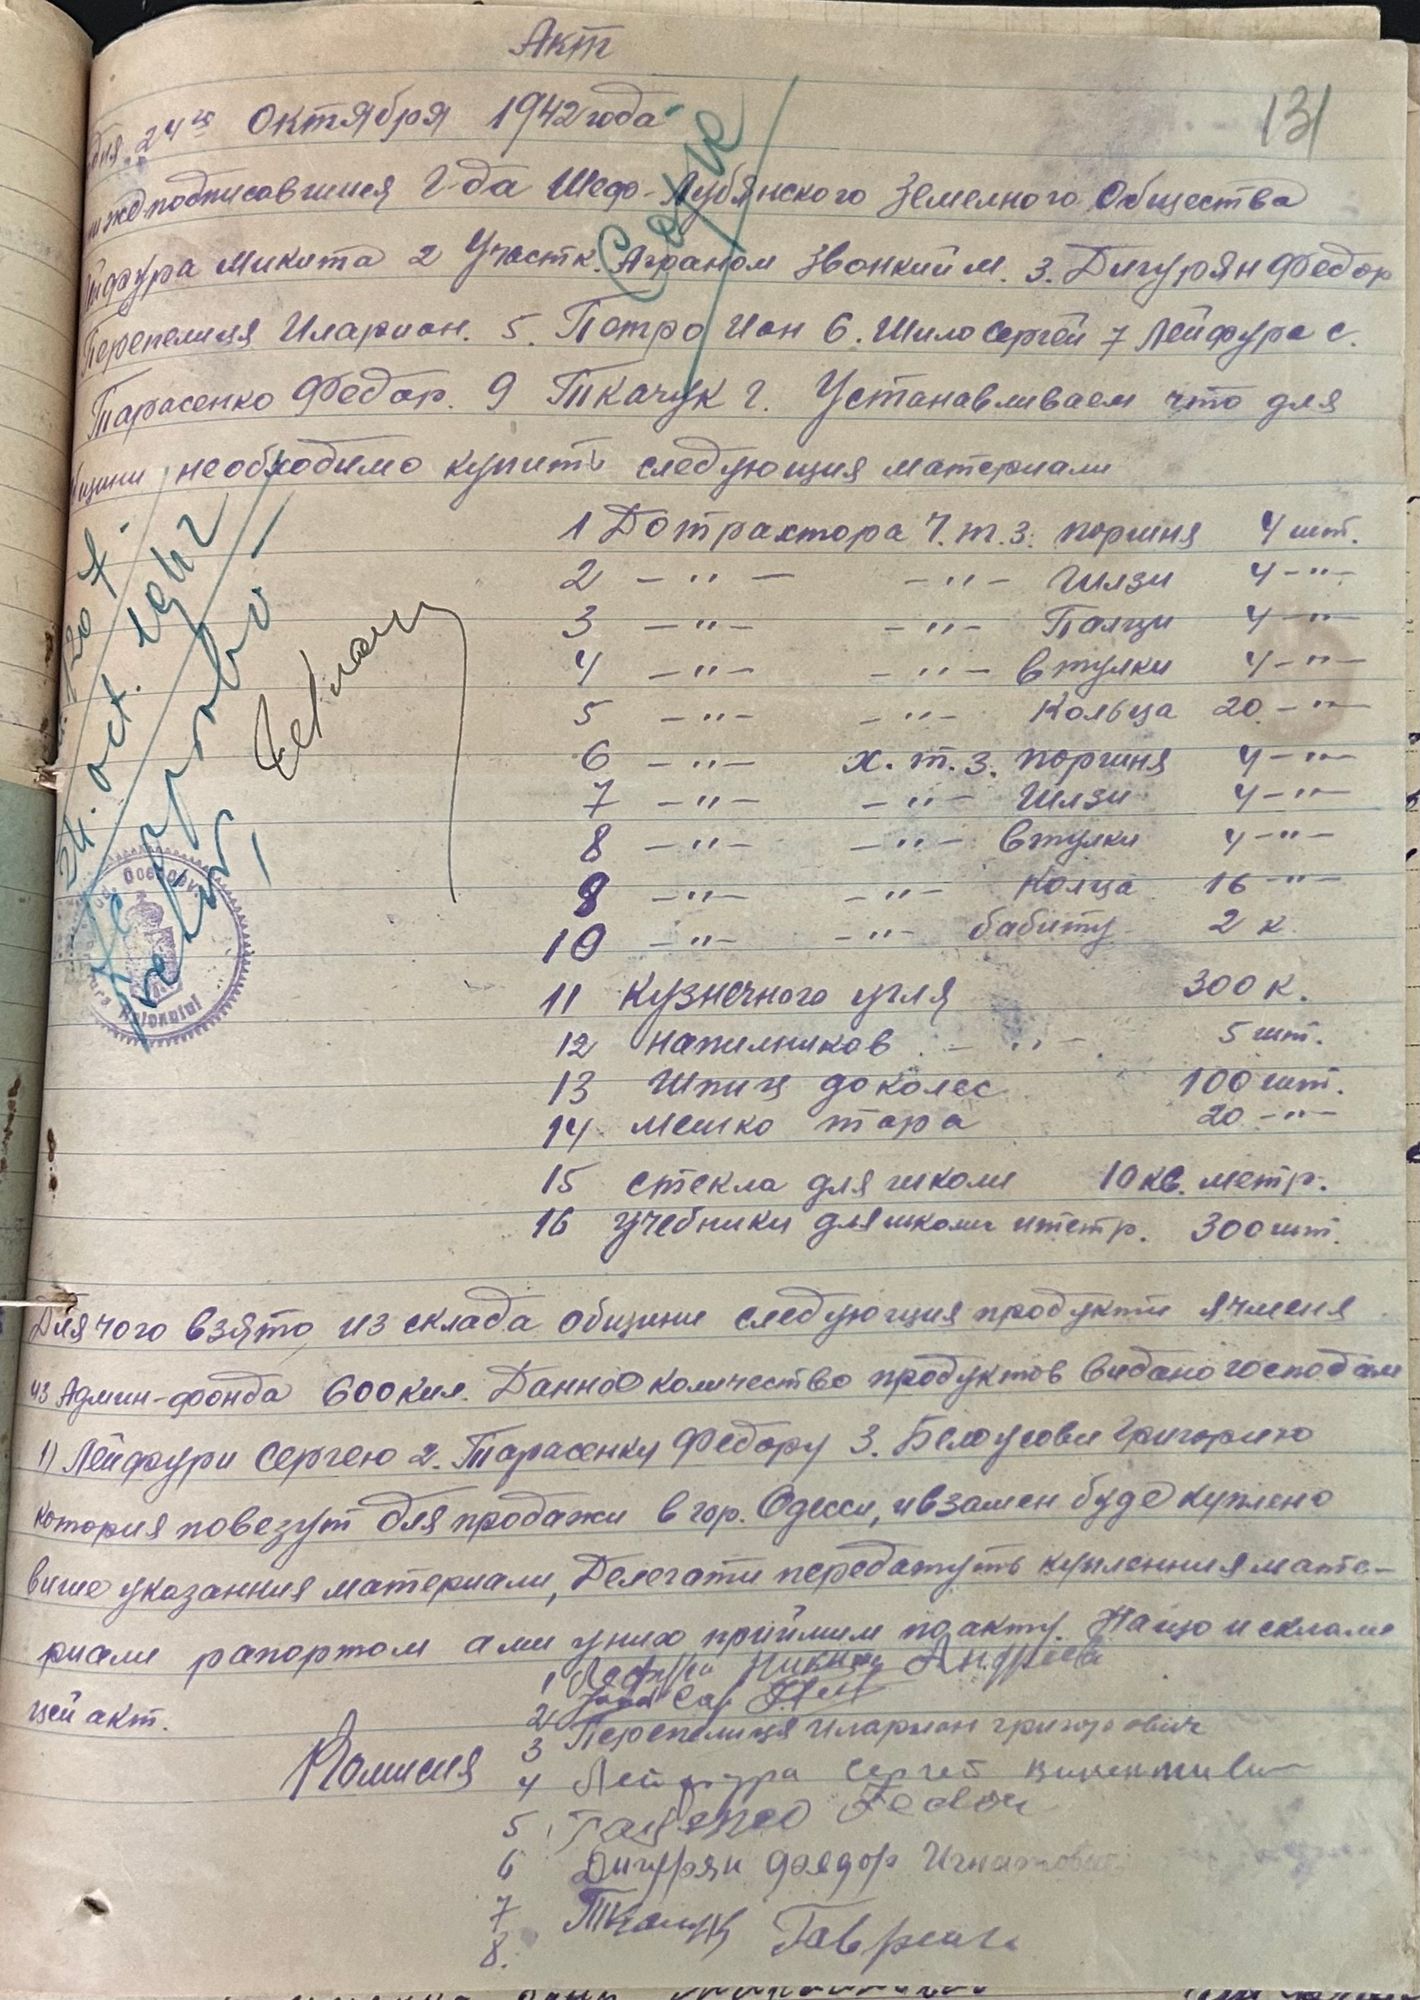 Акт
131
дня 24го Октября 1942 года
нижеподписавшиися г-да Шеф-Лубянского Земелного Общества
Лейфура Микита 2 Участк. Аграном Звонкий М. 3. Дигурян Федор
Перепелиця Иларион. 5. Петро Ион 6. Шило Сергей 7 Лейфура С.
Тарасенко Федор. 9 Ткачук Г. Устанавливаем что для
необходимо купить следующия материали
1 До трактора Ч.Т.З. поршня 4 шт.
2 –„– –„– Гилзи 4 –„–
3 –„– –„– Палци 4 –„–
4 –„– –„– Втулки 4 –„–
5 –„– –„– Кольца 20 –„–
6 –„– Х.Т.З. поршня 4 –„–
7 –„– –„– Гилзи 4 –„–
8 –„– –„– Втулки 4 –„–
9 –„– –„– Колца 16 –„–
10 –„– –„– бабиту 2 к.
11 Кузнечного угля 300 к.
12 напилников –„– 5 шт.
13 Шпиц до колес 100 шт.
14 мешко тара 20 –„–
15 стекла для школи 10 кв. метр.
16 учебники для школи и тетр. 300 шт.
Copie
24. oct. 1942
Se aprobă
Для чого взято из склада общини следующия продукти ячменя
из Админ-фонда 600 кил. Данное количество продуктов видано господам
1) Лейфури Сергею 2. Тарасенку Федору 3. Белоусови Григорию
котория повезут для продажи в гор. Одесси, и взамен буде куплено
више указанния материали, Делегати передатуть купленния мате-
риали рапортом а ми у них приймим по акту. На що и склали
цей акт.
Комисия
1
2
3 Перепелиця Иларион Григорович
4 Лейфура Сергей
5
6 Дигурян Фядор Игнатович
7 Ткачук Гаврил
8.